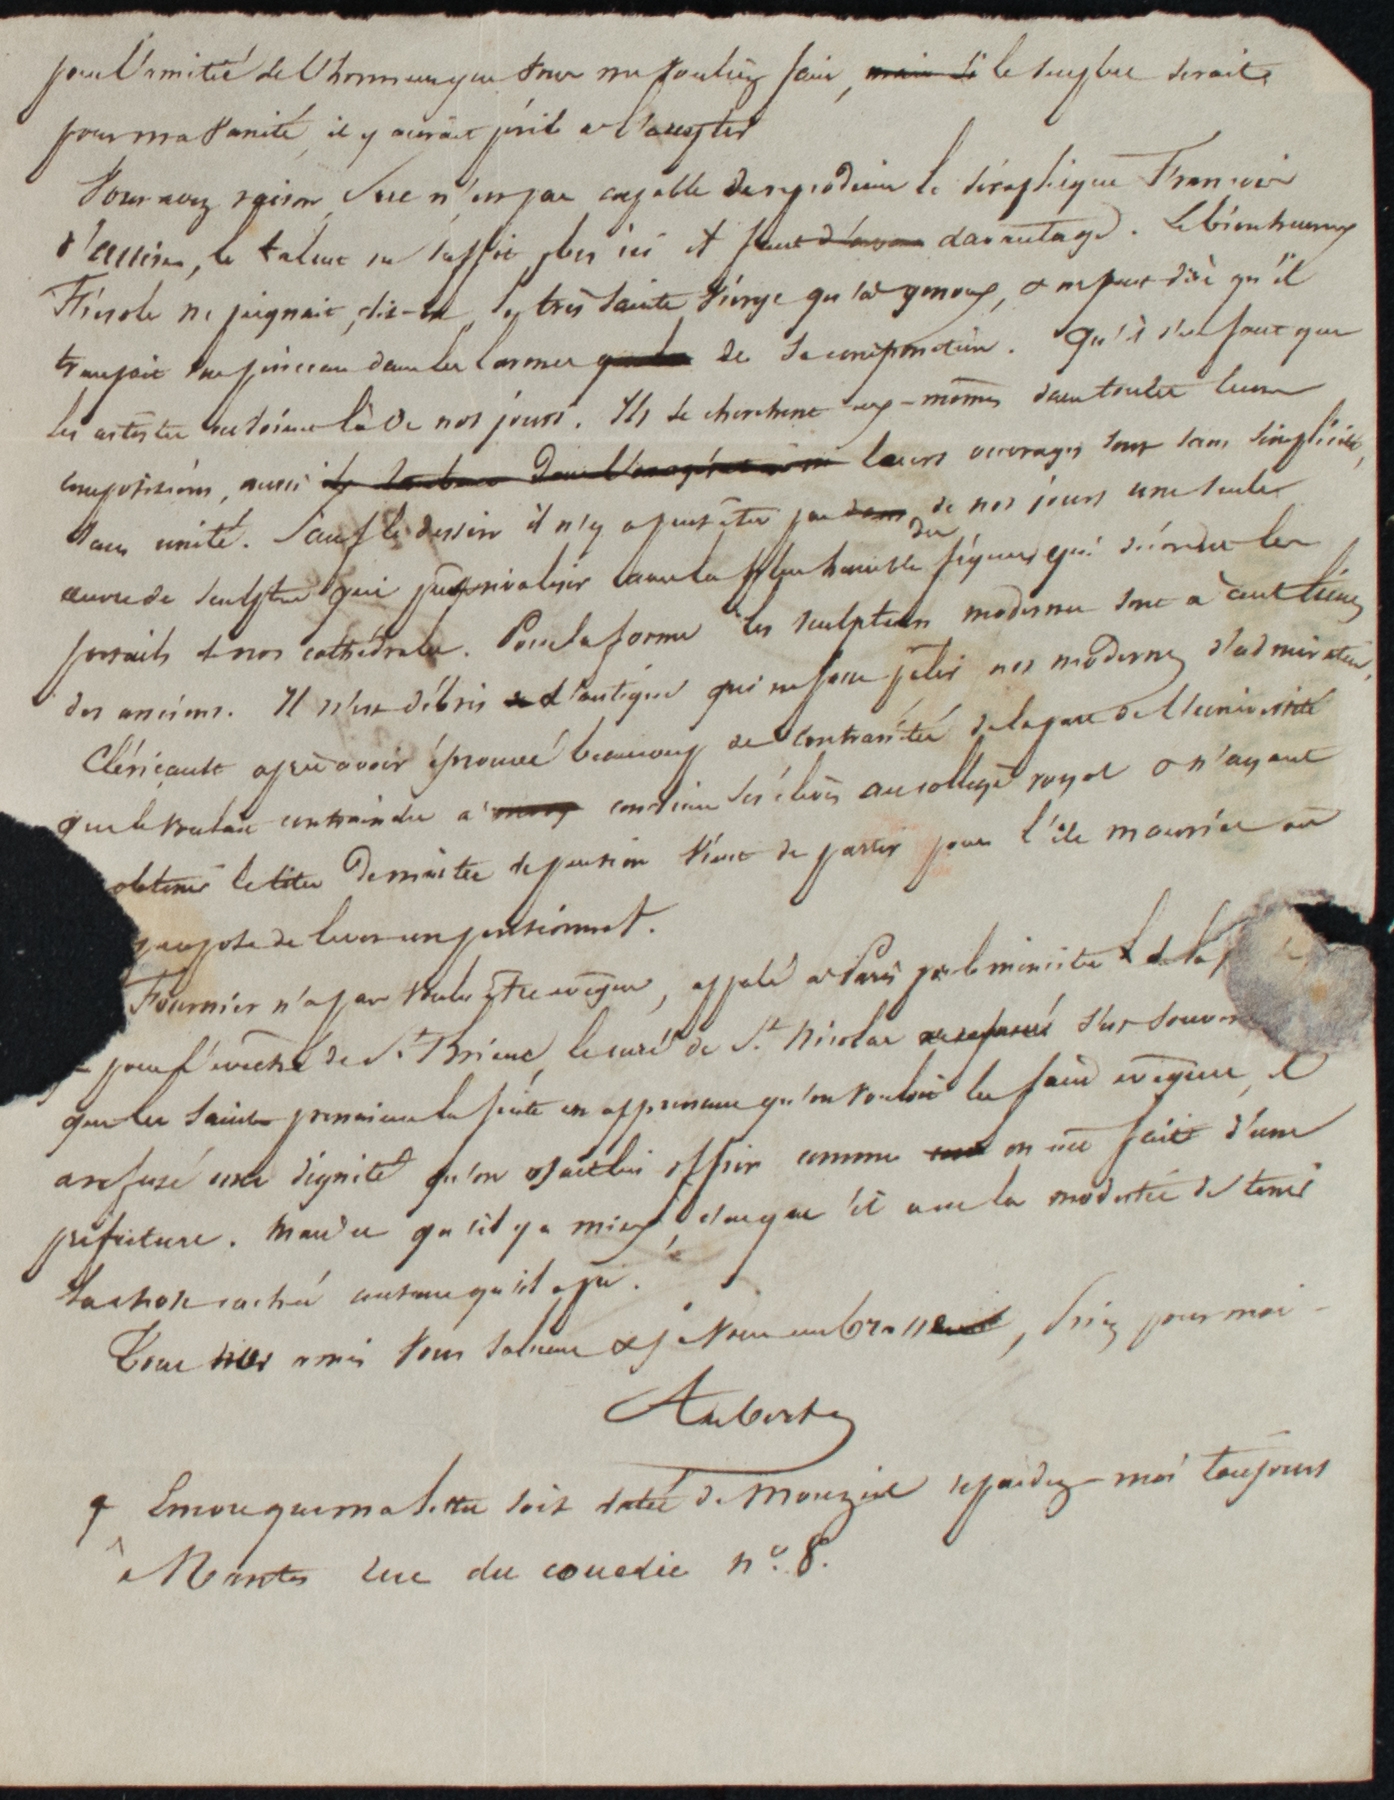 pour l'amitié de l'honneur que vous me vouliez faire, mais si le scrupule serait
pour ma vanité, il y aurait péril à l'accepter
Vous avez raison, Suc n'est pas capable de reproduire le séraphique François
d'assise, le talent ne suffit plus ici il faut d'avan davantage. Le bienheureux
Fiésole ne peignait, dit-on, la très sainte Vierge qu'à genoux, on peut dire qu'il
trempait son pinceau dans les larmes de sa componction. Qu'il s'en faut que
les artistes en soient là de nos jours. Ils se cherchent eux-mêmes dans toutes leurs
compositions, aussi leurs ouvrages sont sans simplicité,
sans unité. Sauf le dessin il n'y a peut être pas dans de nos jours une seule
œuvre de sculpture qui puisse rivaliser avec la plus humble des figures qui décorent les
portails de nos cathédrales. Pour la forme les sculpteurs modernes sont à cent lieues
des anciens. Il n'est débris de l'antique qui ne fasse pâlir nos modernes d'admiration.
Clériceault après avoir éprouvé beaucoup de contrariétés de la part de l'université
que le voulait contraindre à conduire ses élèves au collège royal & n'ayant
obtenir le titre de maître de pension vient de partir pour l'île maurice où
propose de lever un pensionnat.
Fournier n'a pas voulu être evêque, appelé à Paris par le ministre
pour l'évêché de St Brieuc, le curé de St Nicolas s'est souvenu
que les saints prenaient la fuite en apprenant qu'on voulait les faire evêques, il
a refusé une dignité qu'on osait lui offrir comme on eût fait d'une
préfecture. mais ce qu'il y a mieux, c'est que c'est avec la modestie de tenir
la chose cachée autant qu'il a pu.
Tous nos amis vous saluent & je vous embrasse, priez pour moi -
Auberty
quoique ma lettre soit datée de Mouzeil répondez-moi toujours
à Nantes rue du couedic n° 8.